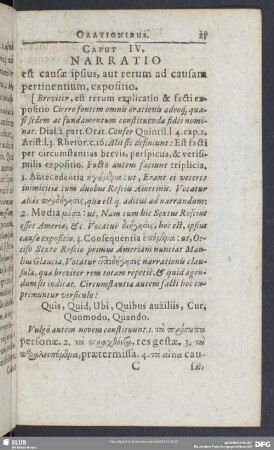 ORATIONIBUS. 25
CAPUT IV.
NARRATIO
est causæ ipsius, aut rerum ad causam
pertinentium, expositio.
[Breviter, est rerum explicatio & facti ex-
positio Cicero fontem omnis orationis adeoq́, qua-
si sedem ac fundamentum constituendæ fidei nomi-
nat. Dial. 2. part. Orat. Confer Quintil. l. 4. cap. 2.
Arist. l. 3. Rhetor. c. 16. Alii sic definiunt: Est facti
per circumstantias brevis, perspicua, & verisi-
milis expositio. Facta autem faciunt triplicia,
1. Antecedentia ut, Erant ei veteres
inimicitiæ cum duobus Rosciis Amerinis. Vocatur
aliàs quæ est q. aditus ad narrandum;
2. Media μέσα: ut, Nam cum hic Sextus Roscius
esset Ameriæ, &c. Vocatur διήγησις, hoc est, ipsius
causæ expositio. 3. Consequentia ἑπόμενα: ut, Oc-
ciso Sexto Roscio primus Ameriam nunciat Mal-
lius Glaucia. Vocatur ἐπιδιήγησις narrationis clau-
sula, qua breviter rem totam repetit, & quid agen-
dum sit indicat. Circumstantiæ autem facti hoc ex-
primuntur versiculo:
Quis, Quid, Ubi, Quibus auxiliis, Cur,
Quomodo, Quando.
Vulgò autem novem constituunt. 1. τὰ πρόσωπα
personæ. 2. τὰ πραχθέντα, res gestæ. 3. τὰ
prætermissa. 4. τὰ αἴτια cau-
C sæ:
SLUB